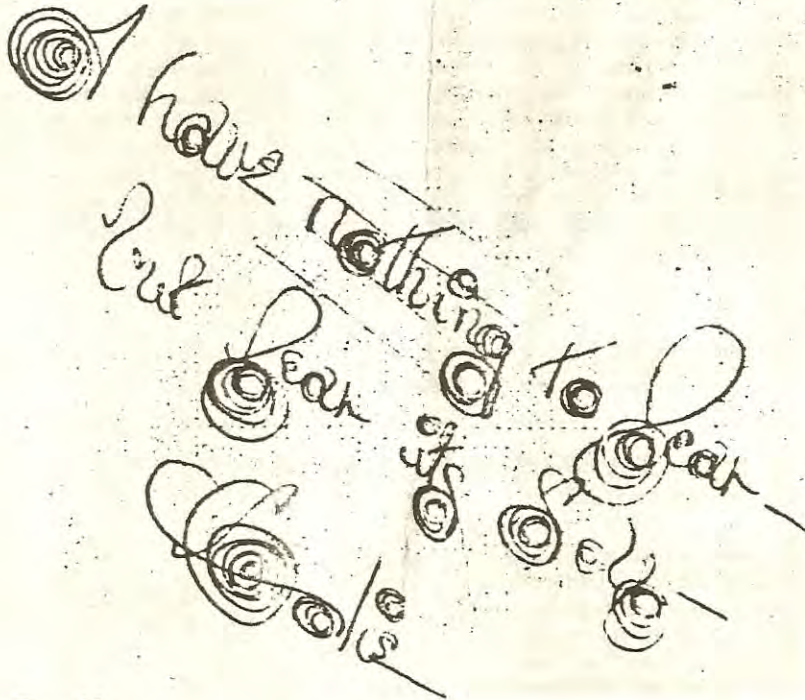 I have nothing to fear —
but fear itself —